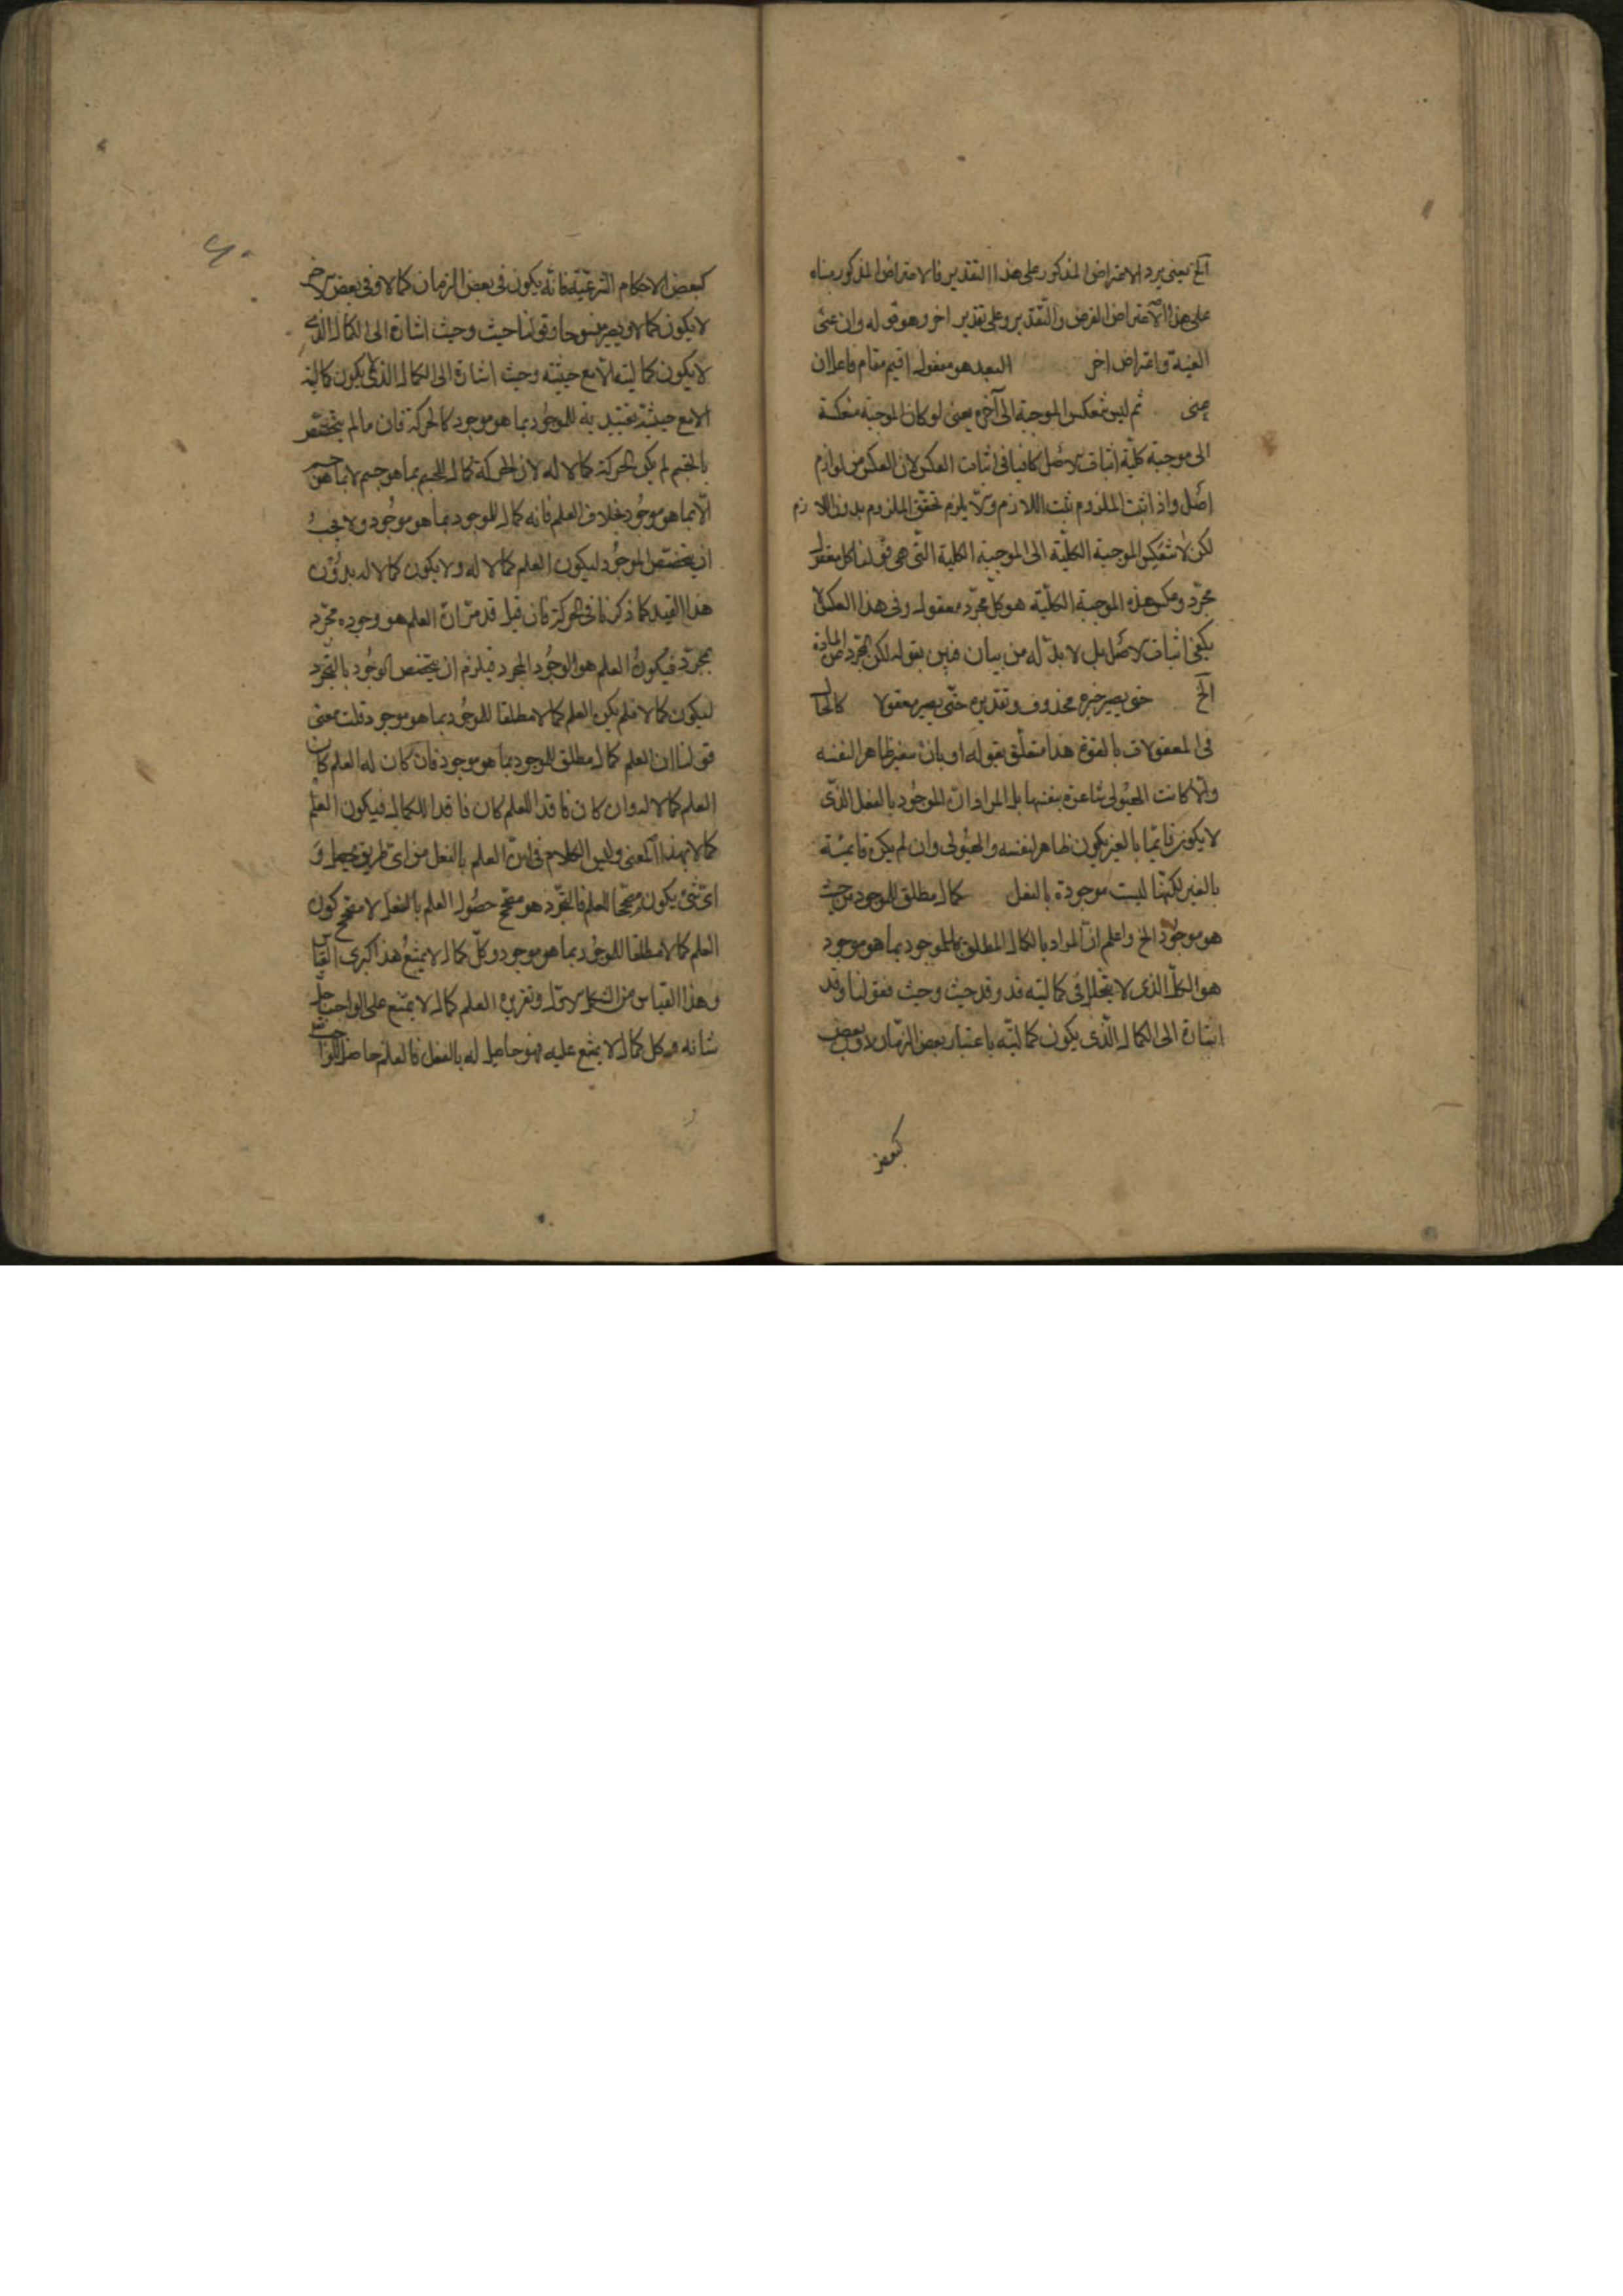 الخ يعنى يرد الاعتراض المذكور على هذا التقدير فالاعتراض المذكور بناء
على هذا الاعتراض الفرض والتقدير وعلى تقدير اخر وهو قوله وان عنى
الغيبة واعتراض اخر البعد هو مفعول اقيم مقام فاعل ان
عنى ثم ليس تنعكس الموجبة الى آخره يعنى لو كان الموجبة منعكسة
الى موجبة كلية اثبات الاصل كافيا فى اثبات العكس لان العكس من لوازم
اصل واذا ثبت الملزوم ثبت اللازم والا يلزم تحقق الملزوم بدون اللازم
لكن لا تنعكس الموجبة الكلية الى الموجبة الكلية التى هى قولنا كل معقول
مجرد وعكس هذه الموجبة الكلية هو كل مجرد معقول وفى هذا العكس لا
يكفى اثبات الاصل بل لا بد له من بيان فبين بقوله لكن المجرد عن المادة
الخ حتى يصير خبره محذوف وتقديره حتى يصير معقولا كالحال
فى المعقولات بالقوة هذا متعلق بقوله او بان يتغير ظاهر النفسه
والا كانت الهيولى شاعرة بنفسها بل المراد ان الموجود بالفعل الذى
لا يكون قائما بالغير يكون ظاهرا لنفسه والهيولى وان لم يكن قائمة
بالغير لكنها ليست موجودة بالفعل كمال مطلق للموجود من حيث
هو موجود الخ واعلم ان المراد بالكمال المطلق للموجود بما هو موجود
هو الكمال الذى لا يتخلل فى كماليته قد وقد حيث وحيث فقولنا وقد
اشارة الى الكمال الذى يكون كماليته باعتبار بعض الزمان لا وبعض
كبعض
كبعض الاحكام الشرعية فانه يكون فى بعض الزمان كمالا وفى بعض الاخر
لا يكون كمالا ويصير منسوخا وقولنا حيث وحيث اشارة الى الكمال الذى
لا يكون كماليته الا مع حيثيته وحيث اشارة الى الكمال الذى لا يكون كماليته
الا مع حيثية تقييدية للموجود بما هو موجود كالحركة فان ما لم يتخصص
بالجسم لم يكن الحركة كمالا له لان الحركة كمال للجسم بما هو جسم لا بما هو
الا بما هو موجود بخلاف العلم فانه كمال للموجود بما هو موجود ولا يجب
ان يتخصص الموجود ليكون العلم كمالا له ولا يكون كمالا له بدون
هذا القيد كما ذكرنا فى الحركة فان قيل قد مر ان العلم هو وجوده مجرد
مجرد فيكون العلم هو الوجود المجرد فيلزم ان يتخصص الوجود بالتجرد
ليكون كمالا فلم يكن العلم كمالا مطلقا للموجود بما هو موجود قلت معنى
قولنا ان العلم كمال مطلق للموجود بما هو موجود فان كان له العلم كان
العلم كمالا له وان كان فاقدا للعلم كان فاقدا للكمال فيكون العلم
كمالا بهذا المعنى وليس الكلام فى ان العلم بالفعل من اى طريق يحصل و
اى شئ يكون مصححا للعلم فالتجرد هو مصحح حصول العلم بالفعل لا مصحح كون
العلم كمالا مطلقا للموجود بما هو موجود وكل كمال لا يمتنع هذا كبرى القياس
وهذا القياس من الشكل الاول وتقريره العلم كمال لا يمتنع على الواجب جل
شانه وكل كمال لا يمتنع عليه فهو حاصل له بالفعل فالعلم حاصل للواجب